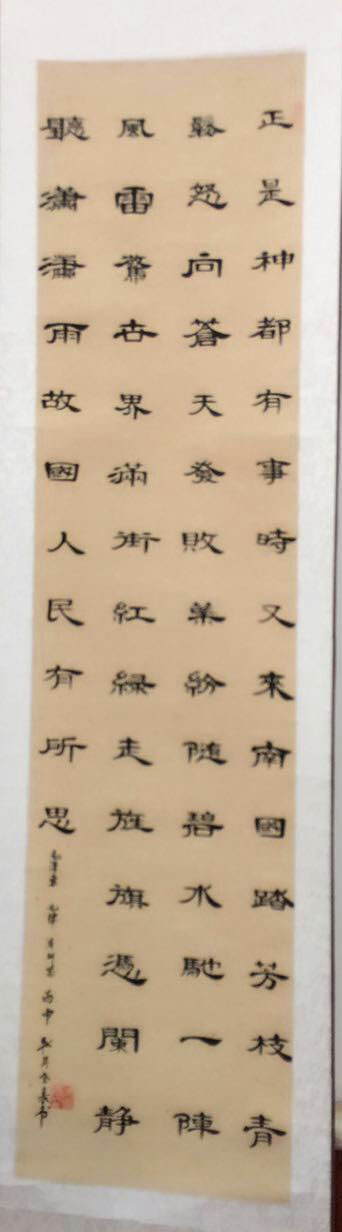 正是神都有事時又來南國踏芳枝青
鬆怒向蒼天發敗葉紛隨碧水馳一陣
風雷驚世界滿街紅綠走旌旗憑闌静
聽瀟瀟雨故國人民有所思
毛澤東 七律 有所思 丙申